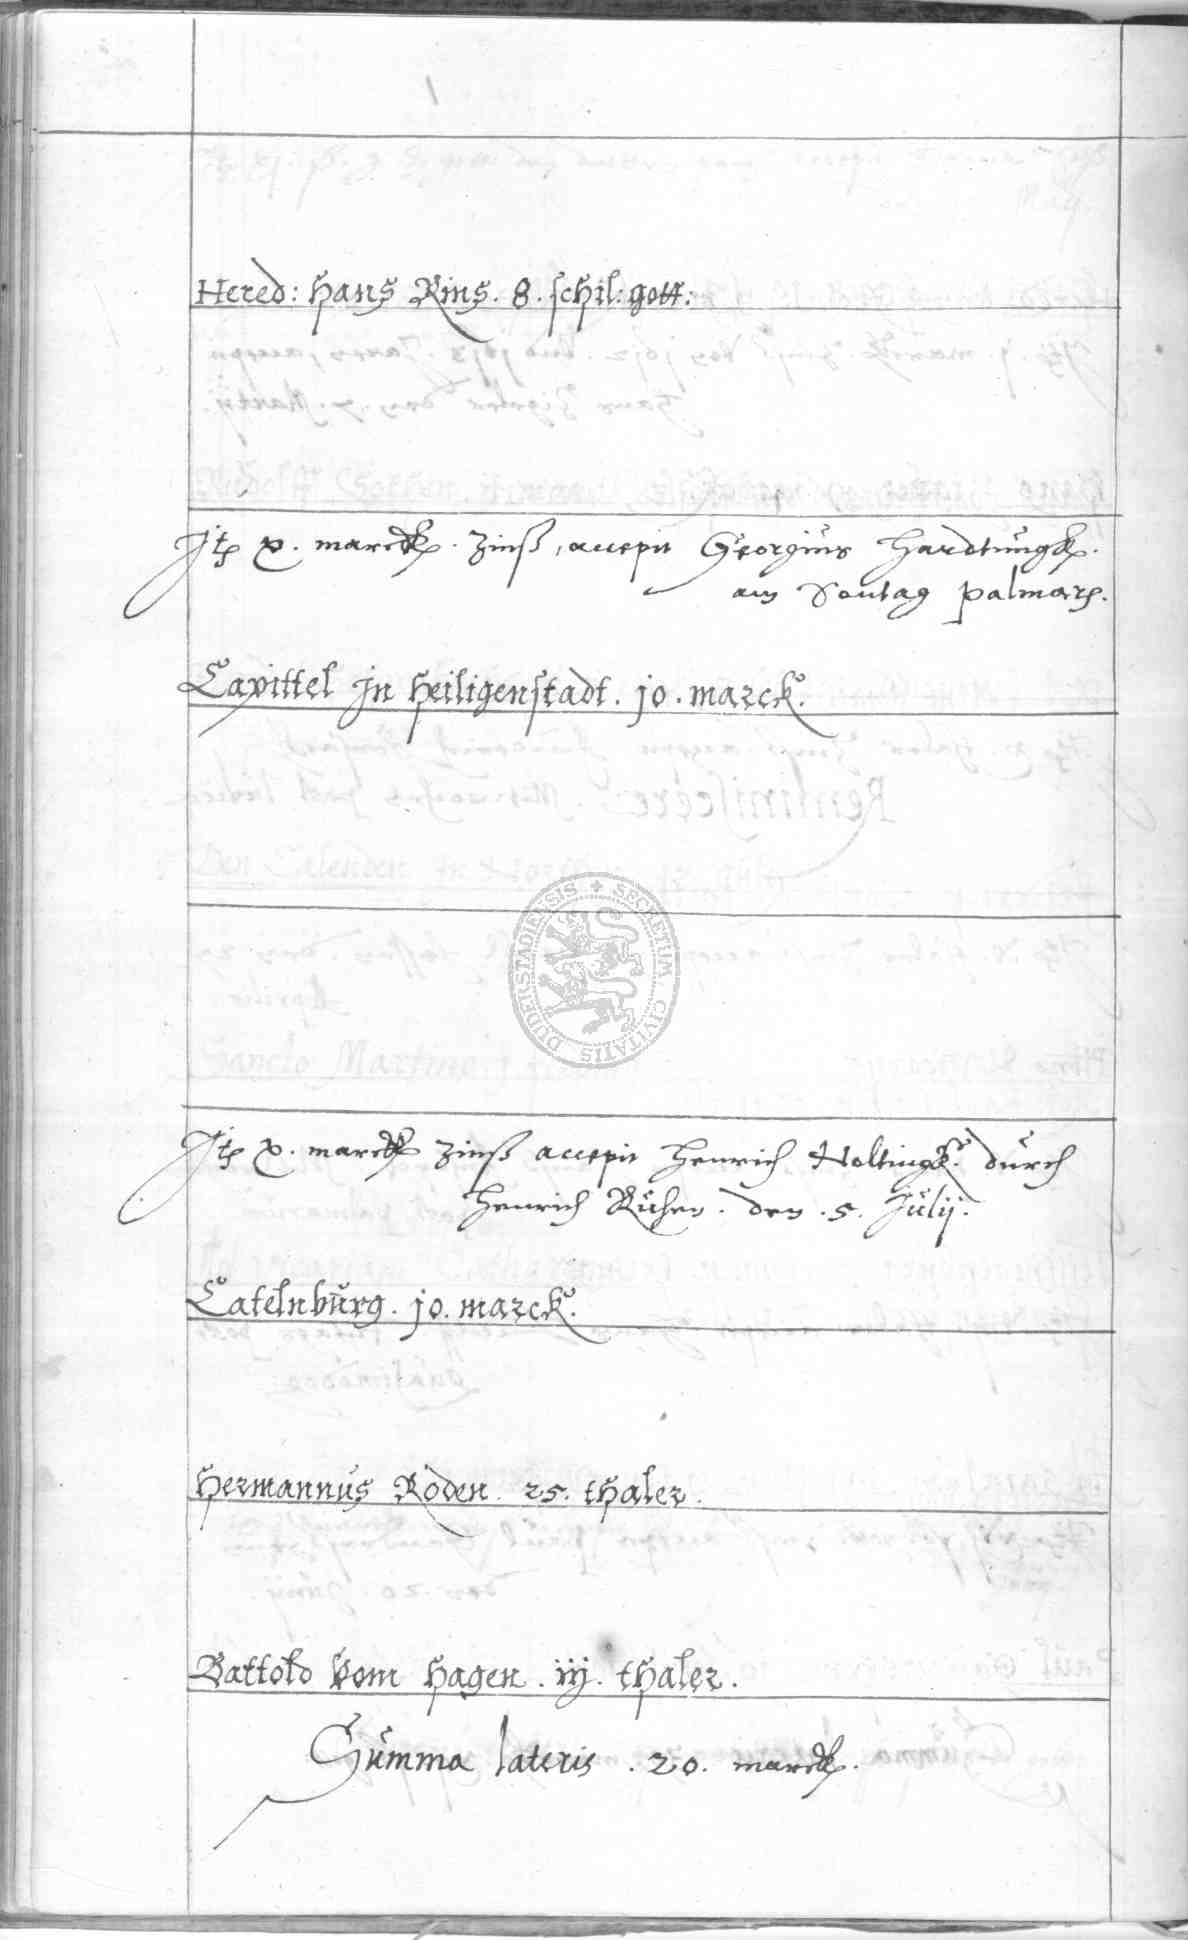 Hered: Hans Rins. 8. schil: gott:
Jtz x. marck. Zinß, accepit Georgius Hardtungk.
am Sontag palmarz.
Capittel Jn Heiligenstadt. jo. marck.
DUDERSTADIENSIS + SECRETUM CIVITATIS
Jtz x. marck Zinß accepit Henrich Noltingk. durch
Henrich . den . 5. Julij.
Catelnburg. jo. marck.
Hermannus Roden. 25. thaler.
Battold vom Hagen. iij. thaler.
Summa lateris . 20. marck.